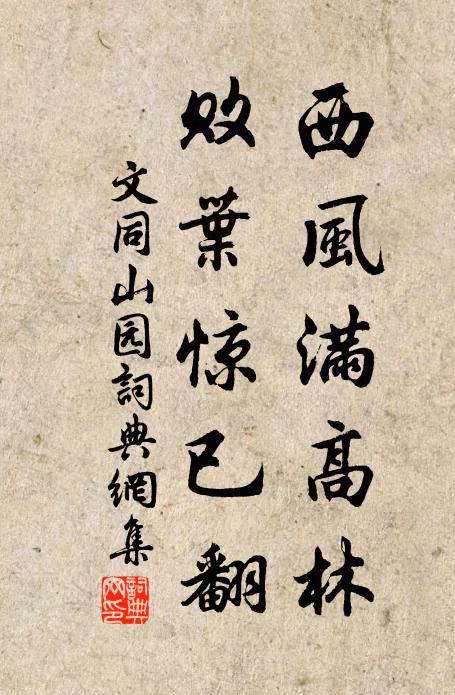 西風滿高林
敗葉惊已翻
文同山园詞典網集
詞典網印